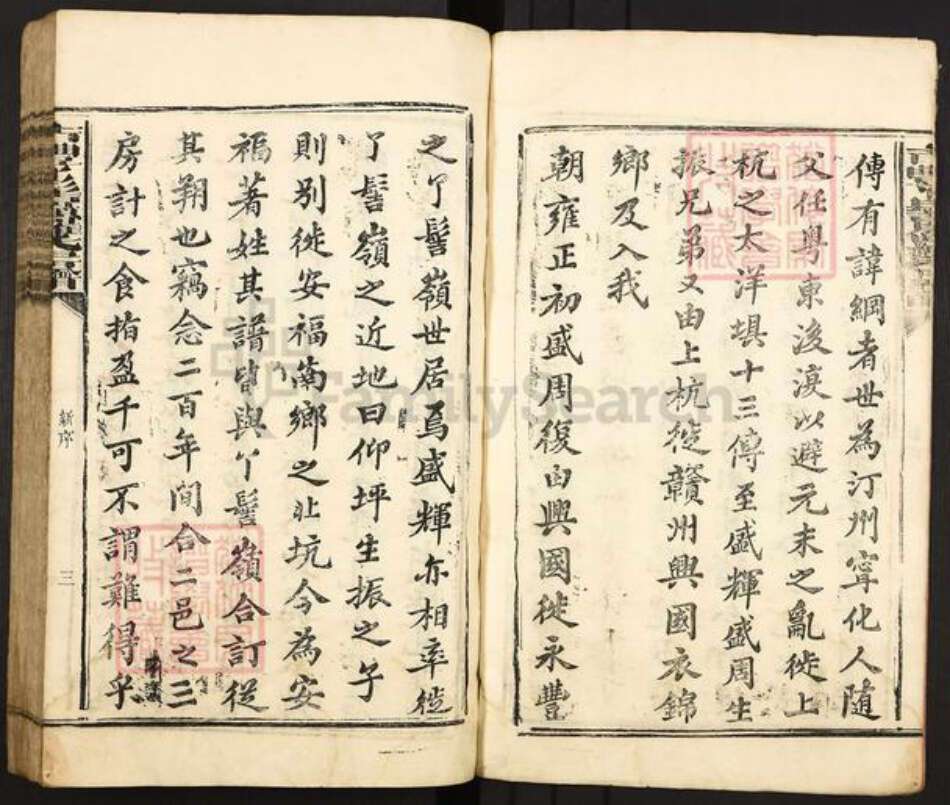 傳有諱綱者世為汀州寧化人隨
父任粵東後淏以避元末之亂徙上
杭之太洋埧十三傳至盛輝盛周生
振兄弟又由上杭徙贛州興國衣錦
鄉及入我
朝雍正初盛周復由興國徙永豐
之丫髻嶺世居焉盛輝亦相率徙
丫髻嶺之近地曰仰坪生振之子
則別徙安福南鄉之北坑今為安
福著姓其譜皆與丫髻嶺合訂從
其朔也竊念二百年間合二邑之三
房計之食指盈千可不謂難得乎
新序
三
FamilySearch